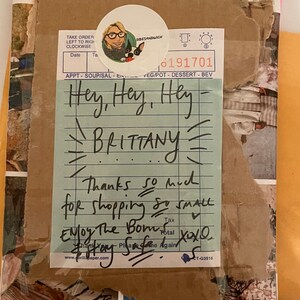 TAKE ORDER
LEFT TO RIGHT
CLOCKWISE
Date
6191701
APPT - SOUP/SAL - VEG/POT - DESSERT - BEV
Hey, Hey, Hey -
BRITTANY
Thanks so much
for shopping so small
Tax
ENJOY the Bonus XOXO
Total
& Stay Safe! S